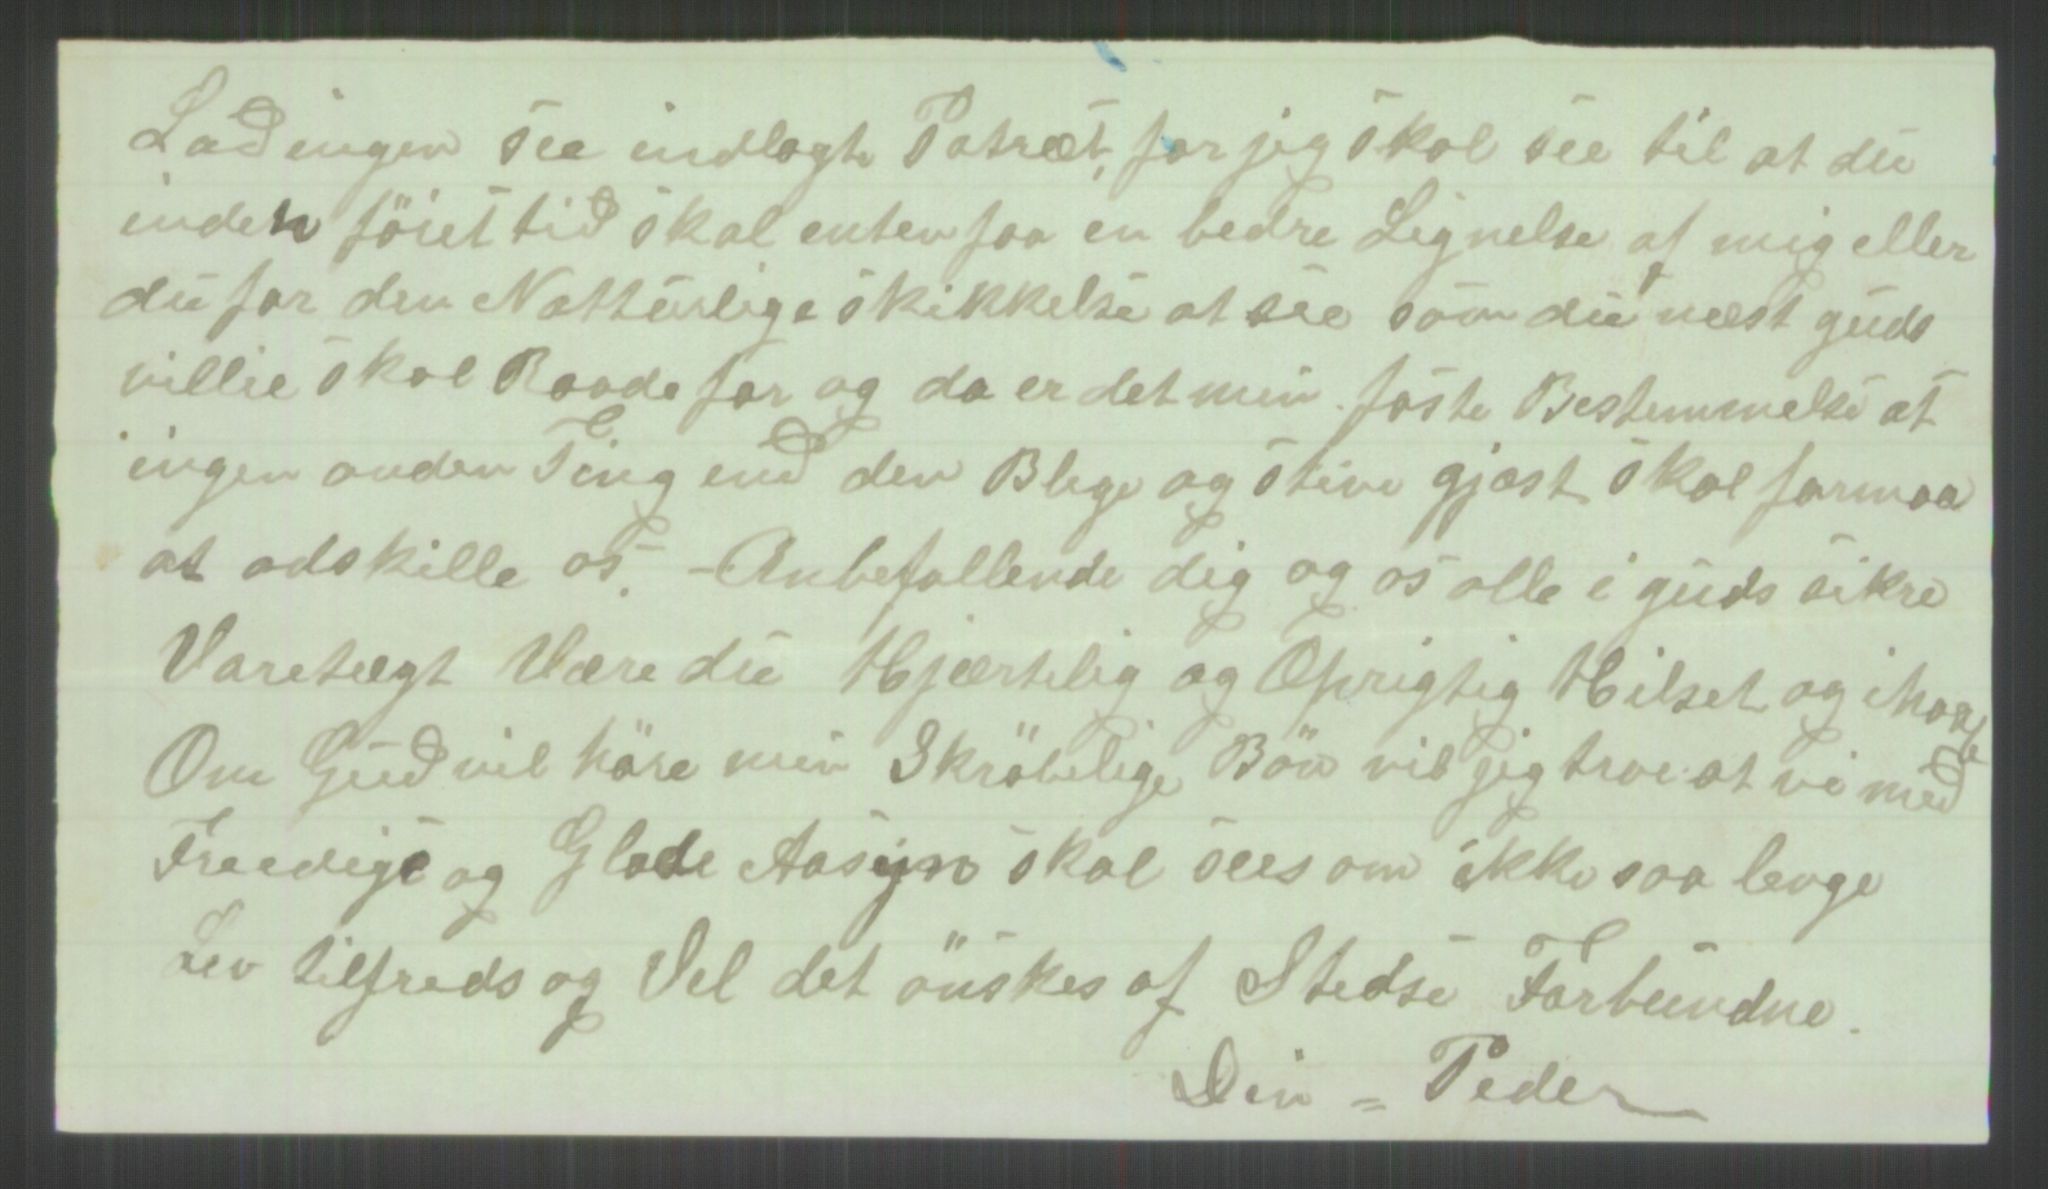 Lad ingen see indlagte Patræt, for jeg skal see til at du
inden föiet tid skal enten faa en bedre Lignelse af mig eller
du far den Nattúrlige skikkelse at see som du næst guds
villie skal Raade for og da er det min faste Bestemmelse at
ingen anden Ting end den Blege og stive gjæst skal formaa
at adskille os. - Anbefallende dig og os alle i guds sikre
Varetægt Være du Hjærtelig og Oprigtig Hilset og ihoag
Om Gud vil høre min Skröbelige Bön vil jeg troe at vi med
Freedige og Glade Aasyn skal sees om ikke saa lenge
Lev tilfreds og Vel det önskes af Stedse Forbundne.
Din = Peder